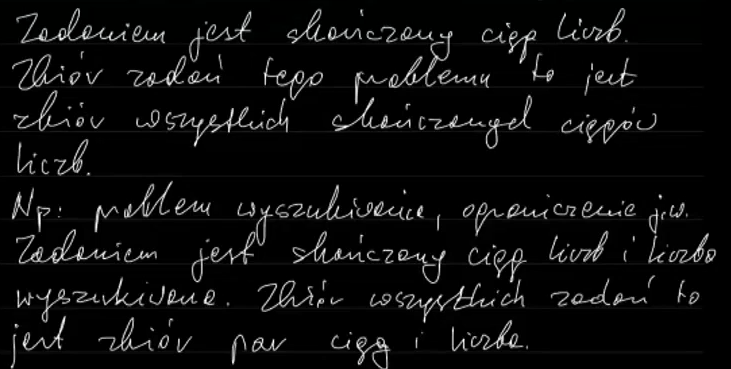 Zadaniem jest skończony ciąg liczb.
Zbiór zadań tego problemu to jest
zbiór wszystkich skończonych ciągów
liczb.
Np: problem wyszukiwania, ograniczenie j.w.
Zadaniem jest skończony ciąg liczb i liczba
wyszukiwana. Zbiór wszystkich zadań to
jest zbiór par ciąg i liczba.